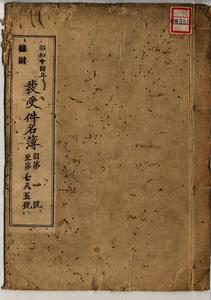 昭和十四年
總財
裁受件名簿
自第一號
至第七八五號